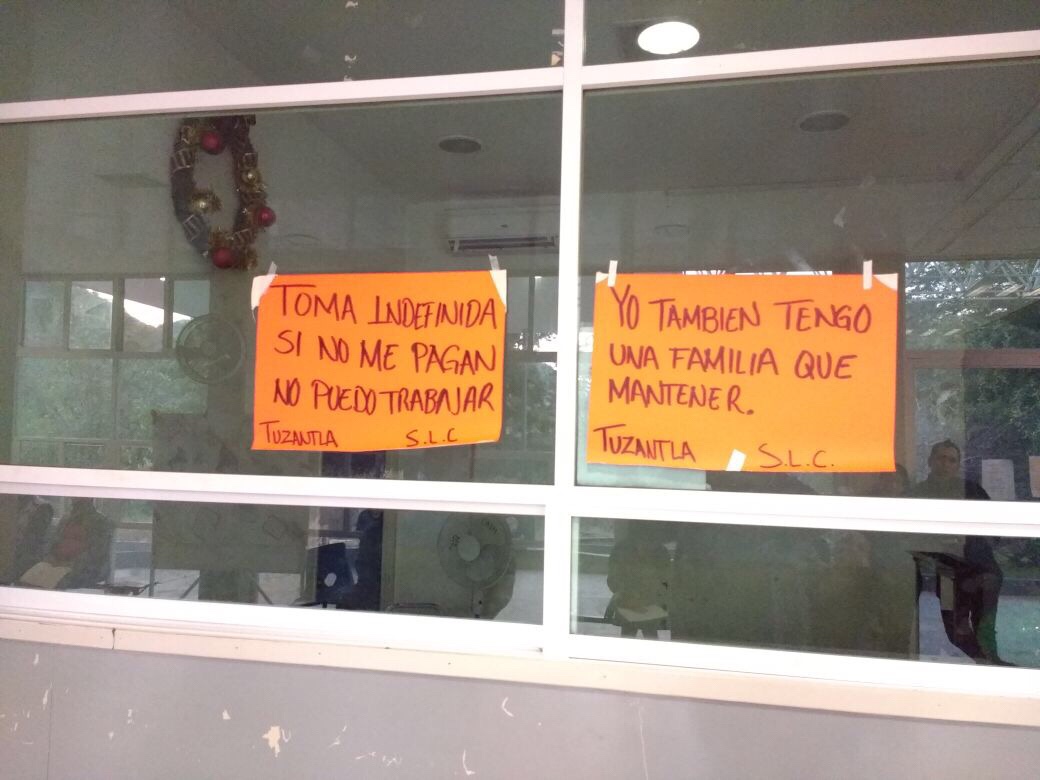 TOMA INDEFINIDA
SI NO ME PAGAN
NO PUEDO TRABAJAR
TUZANTLA S.L.C
YO TAMBIEN TENGO
UNA FAMILIA QUE
MANTENER.
TUZANTLA S.L.C.